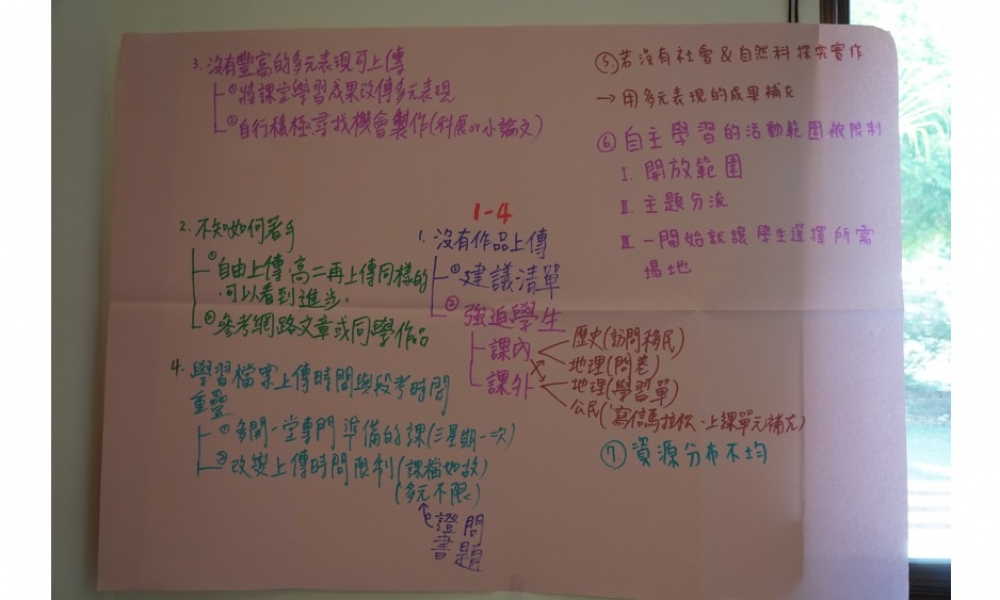 1-4
1. 沒有作品上傳
① 建議清單
② 強迫學生
課內
課外
歷史(訪問移民)
地理(問卷)
地理(學習單)
公民(寫信馬拉松、上課單元補充)
2. 不知如何著手
① 自由上傳,高二再上傳同樣的
可以看到進步。
② 參考網路文章或同學作品
3. 沒有豐富的多元表現可上傳
① 將課堂學習成果改傳多元表現
② 自行積極尋找機會製作(科展or小論文)
4. 學習檔案上傳時間與段考時間
重疊
① 多開一堂專門準備的課(三星期一次)
② 改變上傳時間限制(課檔如故)
(多元不限)
證書
問題
⑤ 若沒有社會&自然科探究實作
→ 用多元表現的成果補充
⑥ 自主學習的活動範圍被限制
I. 開放範圍
II. 主題分流
III. 一開始就讓學生選擇所需
場地
⑦ 資源分布不均